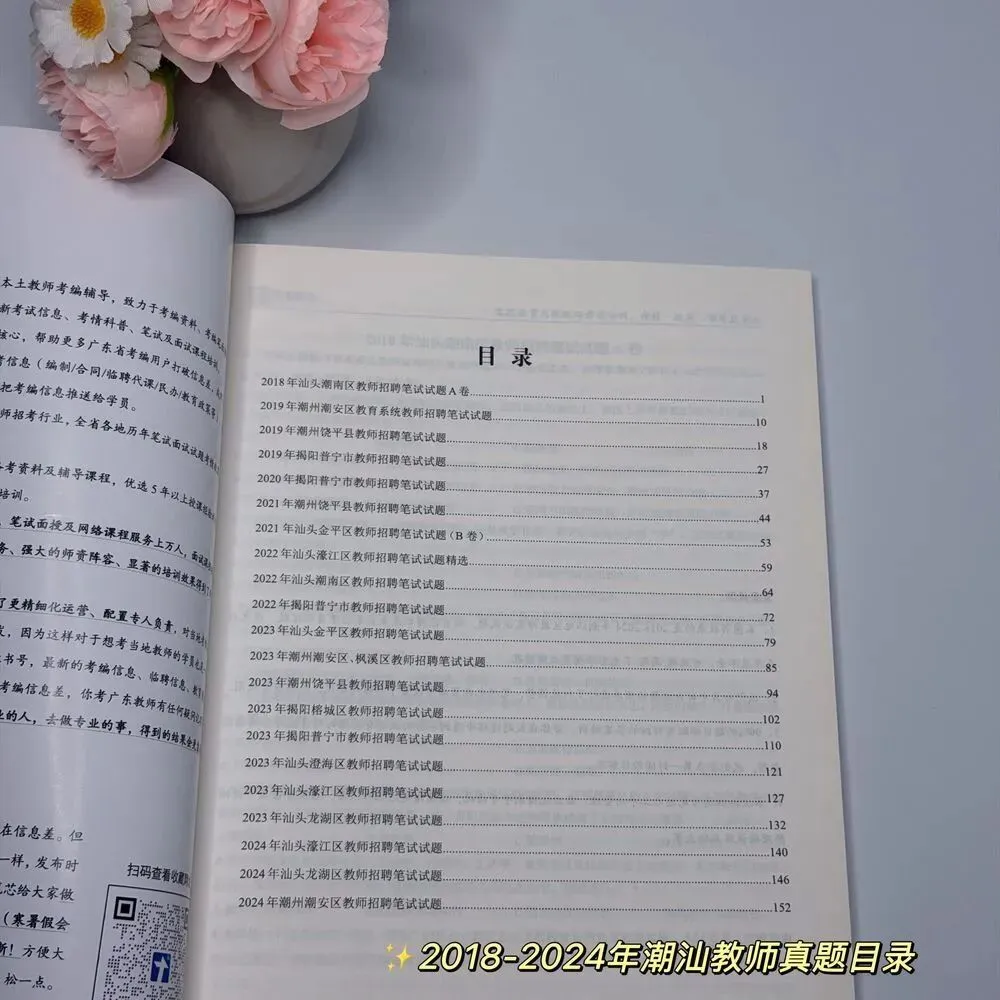 本土教师考编辅导，致力于考编资料、考编
新考试信息、考情科普、笔试及面试课程培训
核心，帮助更多广东省考编用户打破信息差
考信息（编制/合同/临聘代课/民办/教育政策等
把考编信息推送给学员。
师招考行业，全省各地历年笔试面试试题考情
备考资料及辅导课程，优选5年以上授课经验
培训。
笔试面授及网络课程服务上万人，面试
务、强大的师资阵容、显著的培训效果得到了
了更精细化运营、配置专人负责，对当地
发，因为这样对于想考当地教师的学员
书号，最新的考编信息、临聘信息、教
考编信息差，你考广东教师有任何疑问
业的人，去做专业的事，得到的结果会
在信息差。但
一样，发布时
芯给大家做
（寒暑假会
新！方便大
松一点。
扫码查看收藏
目录
2018年汕头潮南区教师招聘笔试试题A卷 1
2019年潮州潮安区教育系统教师招聘笔试试题 10
2019年潮州饶平县教师招聘笔试试题 18
2019年揭阳普宁市教师招聘笔试试题 27
2020年揭阳普宁市教师招聘笔试试题 37
2021年潮州饶平县教师招聘笔试试题 44
2021年汕头金平区教师招聘笔试试题（B卷） 53
2022年汕头濠江区教师招聘笔试试题精选 59
2022年汕头潮南区教师招聘笔试试题 64
2022年揭阳普宁市教师招聘笔试试题 72
2023年汕头金平区教师招聘笔试试题 79
2023年潮州潮安区、枫溪区教师招聘笔试试题 85
2023年潮州饶平县教师招聘笔试试题 94
2023年揭阳榕城区教师招聘笔试试题 102
2023年揭阳普宁市教师招聘笔试试题 110
2023年汕头澄海区教师招聘笔试试题 121
2023年汕头濠江区教师招聘笔试试题 127
2023年汕头龙湖区教师招聘笔试试题 132
2024年汕头濠江区教师招聘笔试试题 140
2024年汕头龙湖区教师招聘笔试试题 146
2024年潮州潮安区教师招聘笔试试题 152
✨2018-2024年潮汕教师真题目录